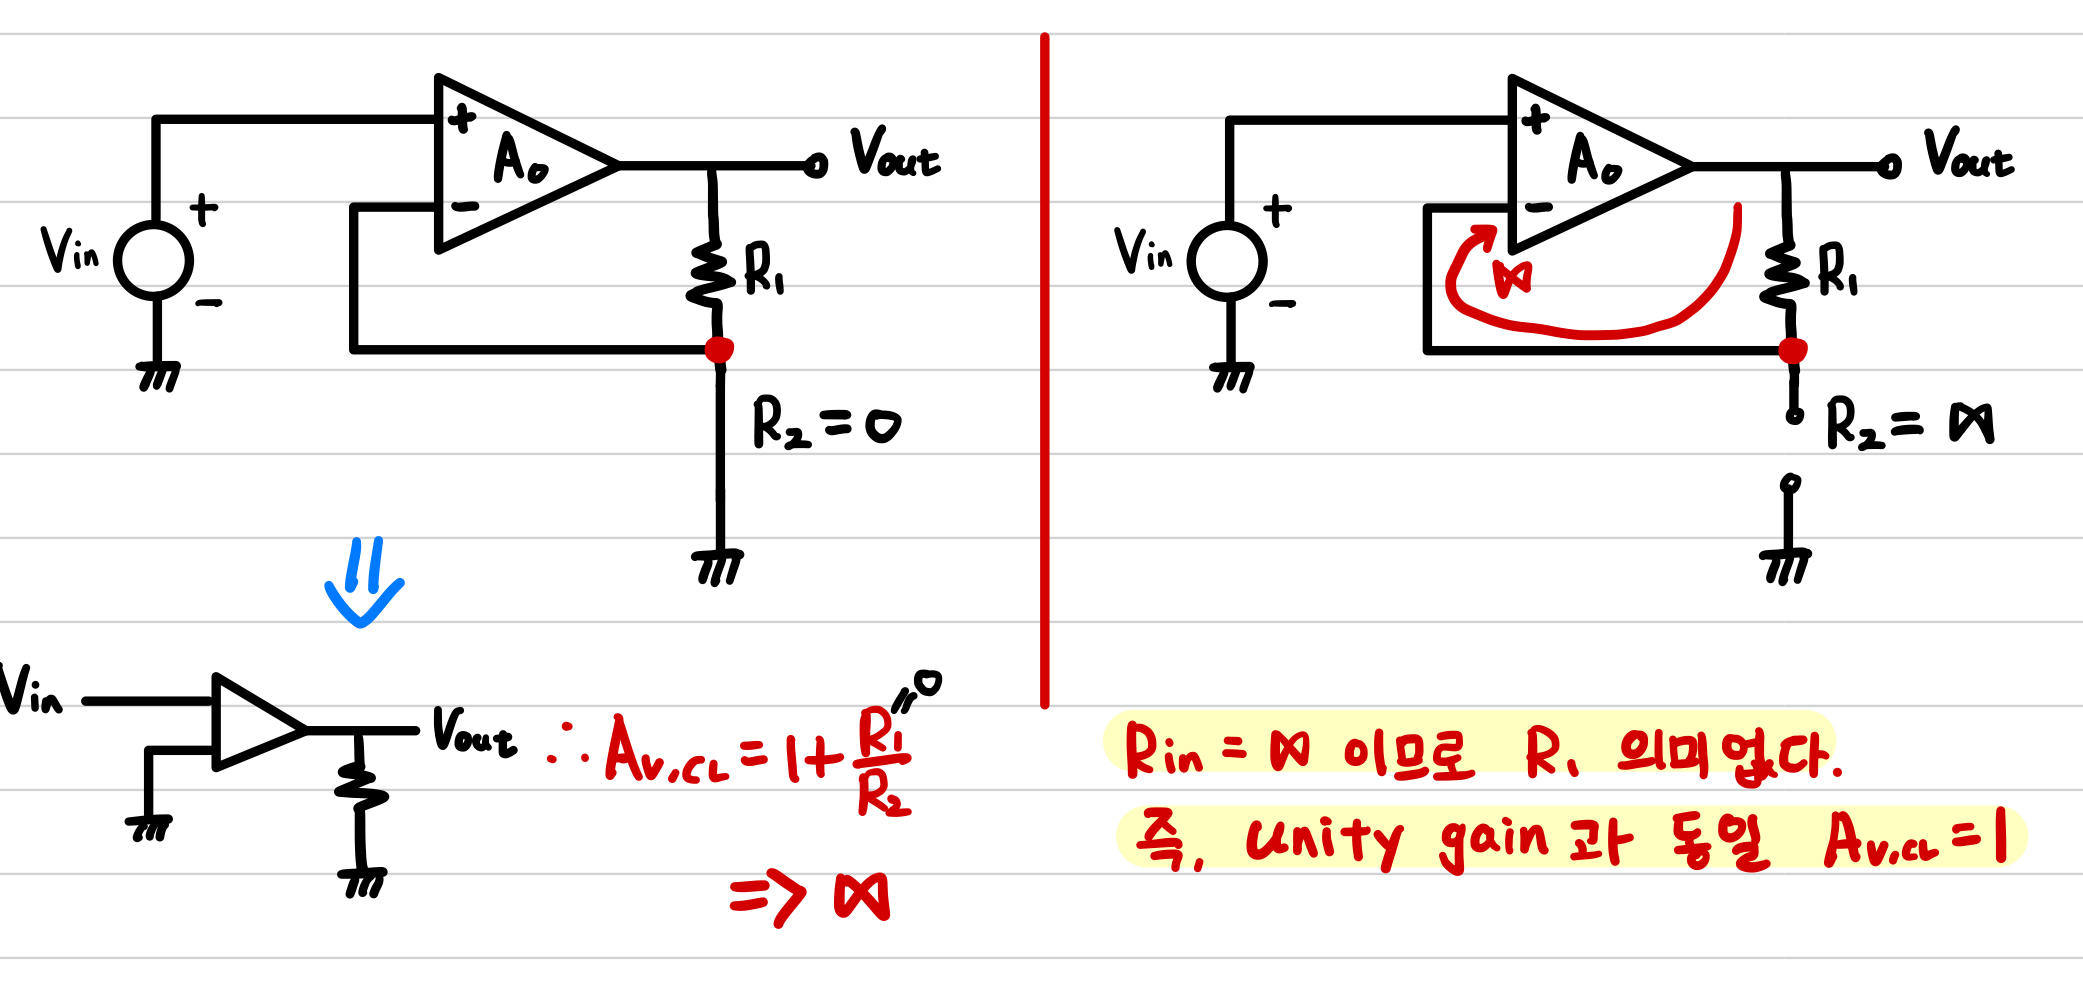 +
A₀
-
Vout
Vin
+
-
R₁
R₂ = 0
Vin
Vout
∴ Av.CL = 1 + R₁/R₂ 〃0
⇒ ∞
+
A₀
-
Vout
Vin
+
-
∞
R₁
R₂ = ∞
Rin = ∞ 이므로 R₁ 의미 없다.
즉, unity gain과 동일 Av.CL = 1